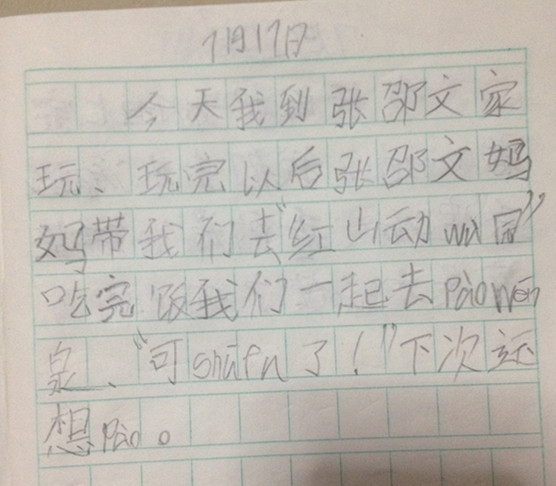 1月17日
今天我到张邵文家
玩、玩完以后张邵文妈
妈带我们去“红山动wu园”
吃完饭我们一起去pàowēn
泉、“可shūfu了！”下次还
想pào。